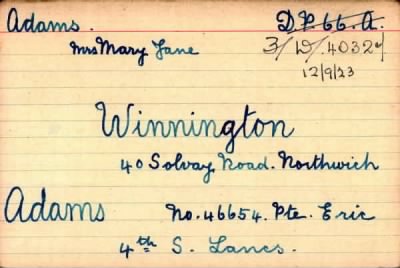 Adams. D.P.66.A.
Mrs Mary Jane 3/D/4032
12/9/23
Winnington
40 Solvay Road. Northwich
Adams No. 46654. Pte. Eric
4th S. Lancs.